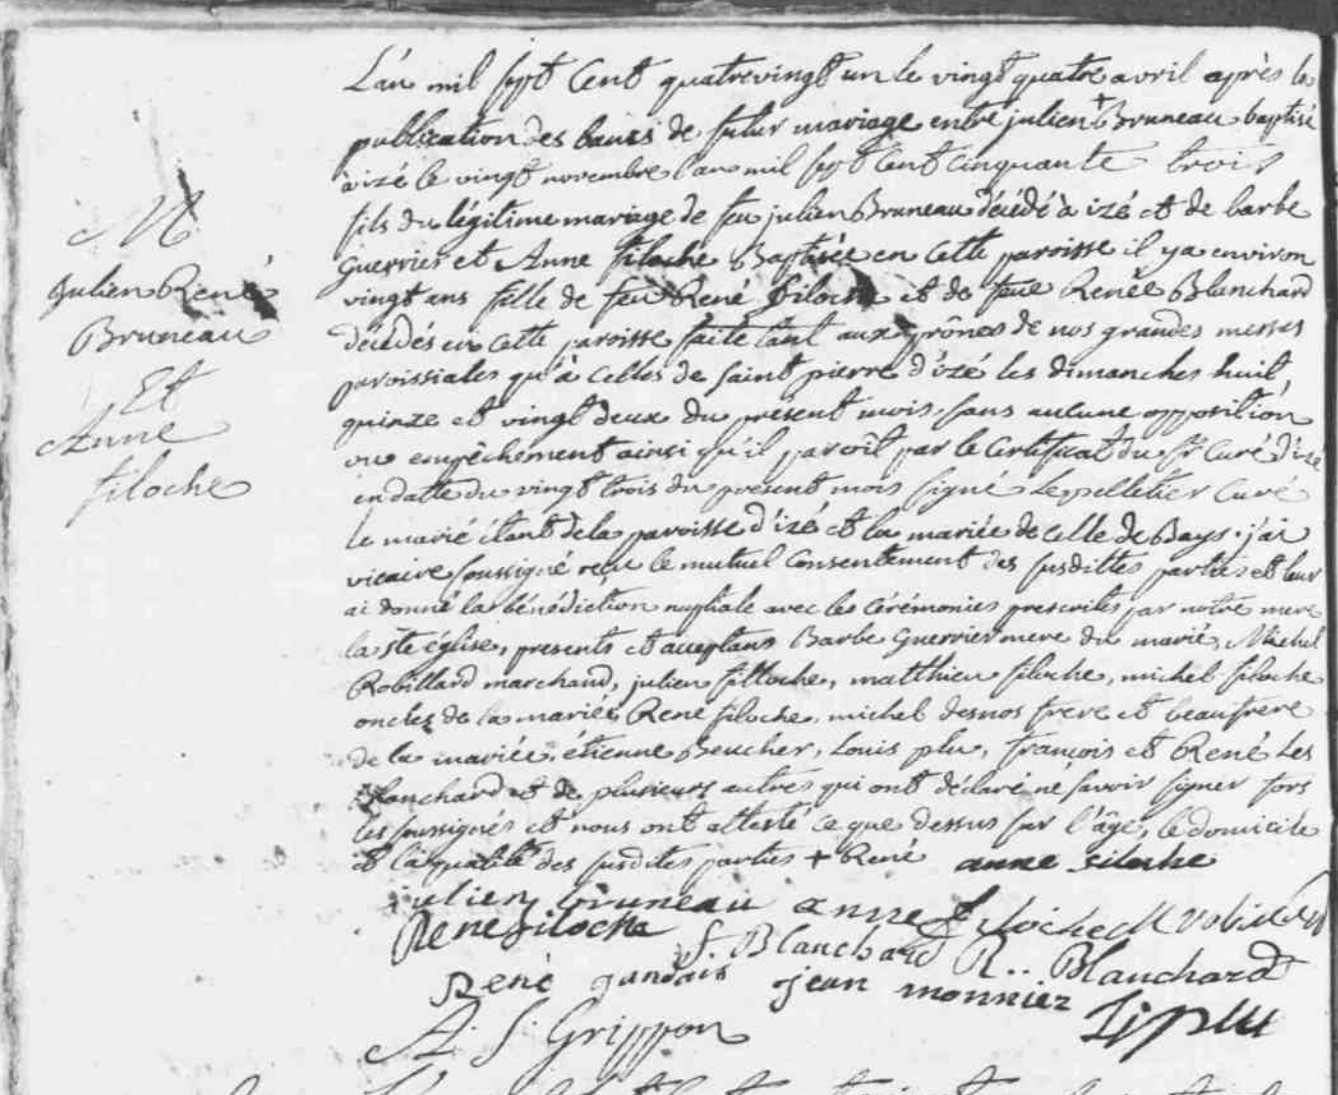 M
Julien René
Bruneau
Et
Anne
filoche
L'an mil sept Cent quatrevingt un le vingt quatre avril après la
publication des bans de futur mariage entre julien + Bruneau baptisé
à izé le vingt novembre l'an mil sept Cent Cinquante trois
fils du légitime mariage de feu julien Bruneau décédé à izé et de barbe
Guerrier et Anne filoche Baptisée en Cette paroisse il y a environ
vingt ans fille de feu René filoche et de feue Renée Blanchard
décédés en Cette paroisse faite tant aux prônes de nos grandes messes
paroissiales qu'à Celles de saint pierre d'izé les dimanches huit,
quinze et vingt deux du présent mois, sans aucune opposition
ou empêchement ainsi qu'il paroît par le Certificat du Sr Curé d'izé
en datte du vingt trois du présent mois signé Lepelletier Curé
le marié étant de la paroisse d'izé et la mariée de Celle de Bays. j'ai
vicaire soussigné reçu le mutuel Consentement des susdittes parties et leur
ai donné la bénédiction nuptiale avec les Cérémonies prescrites par notre mere
la ste église, presents et acceptans Barbe Guerrier mere du marié, Michel
Robillard marchand, julien filloche, matthieu filoche, michel filoche
oncles de la mariée René filoche, michel desnos frere et beaufrere
de la mariée, étienne Beucher, Louis plu, françois et René les
Blanchard et de plusieurs autres qui ont déclaré ne savoir signer fors
les soussignés et nous ont attesté ce que dessus sur l'âge, le domicile
et la qualité des susdites parties + René anne filoche
julien bruneau anne filoche M robillard
René filoche f. Blanchard R.. Blanchard
René gandais jean monnier L plu
A. J. Grippon